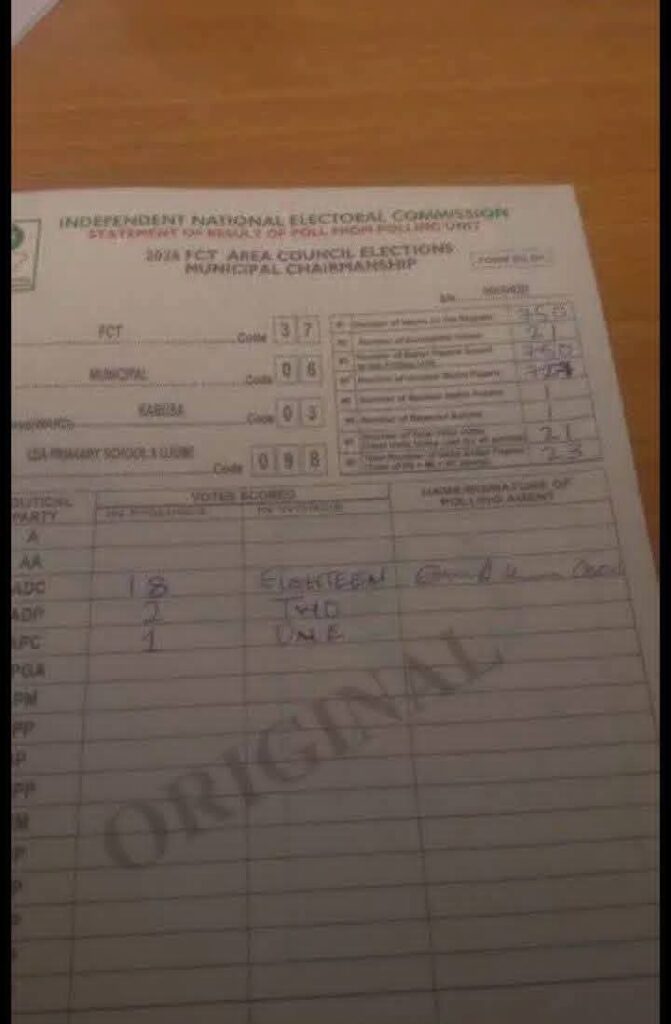 INDEPENDENT NATIONAL ELECTORAL COMMISSION
STATEMENT OF RESULT OF POLL FROM POLLING UNIT
2026 FCT AREA COUNCIL ELECTIONS
MUNICIPAL CHAIRMANSHIP
FCT Code 3 7
MUNICIPAL Code 0 6
KABUSA Code 0 3
LEA PRIMARY SCHOOL Code 0 9 8
Number of Voters on the Register 750
Number of Accredited Voters 21
Number of Ballot Papers Issued 750
Number of Unused Ballot Papers
Number of Spoiled Ballot Papers 1
Number of Rejected Ballots 1
Number of Total Valid Votes 21
Total Number of Used Ballot Papers 23
POLITICAL PARTY
VOTES SCORED
NAME/SIGNATURE OF POLLING AGENT
IN FIGURES IN WORDS
A
AA
ADC 18 EIGHTEEN
ADP 2 TWO
APC 1 ONE
PGA
PM
PP
P
PP
M
P
P
P
ORIGINAL